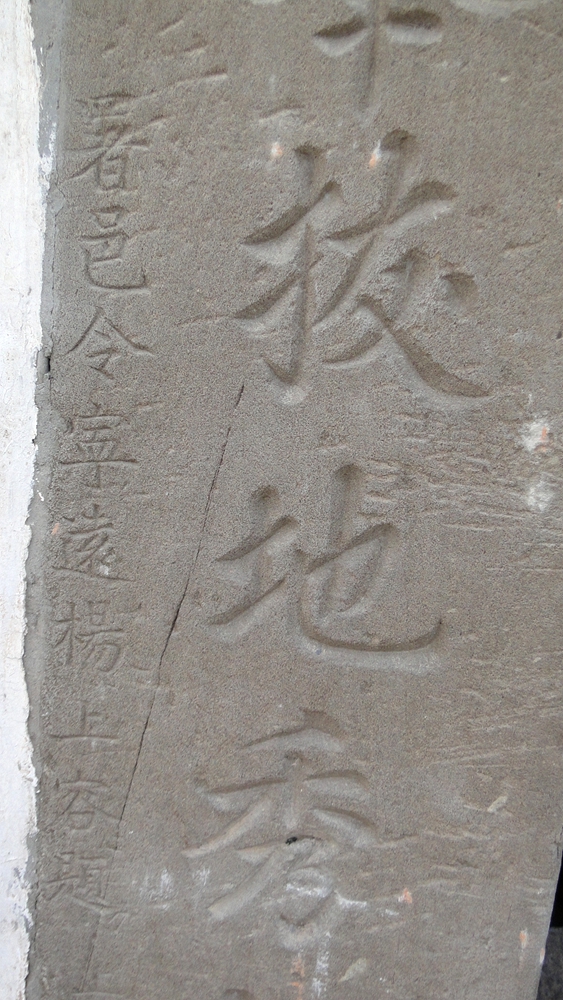 拔地秀
署邑令寧遠楊上容題